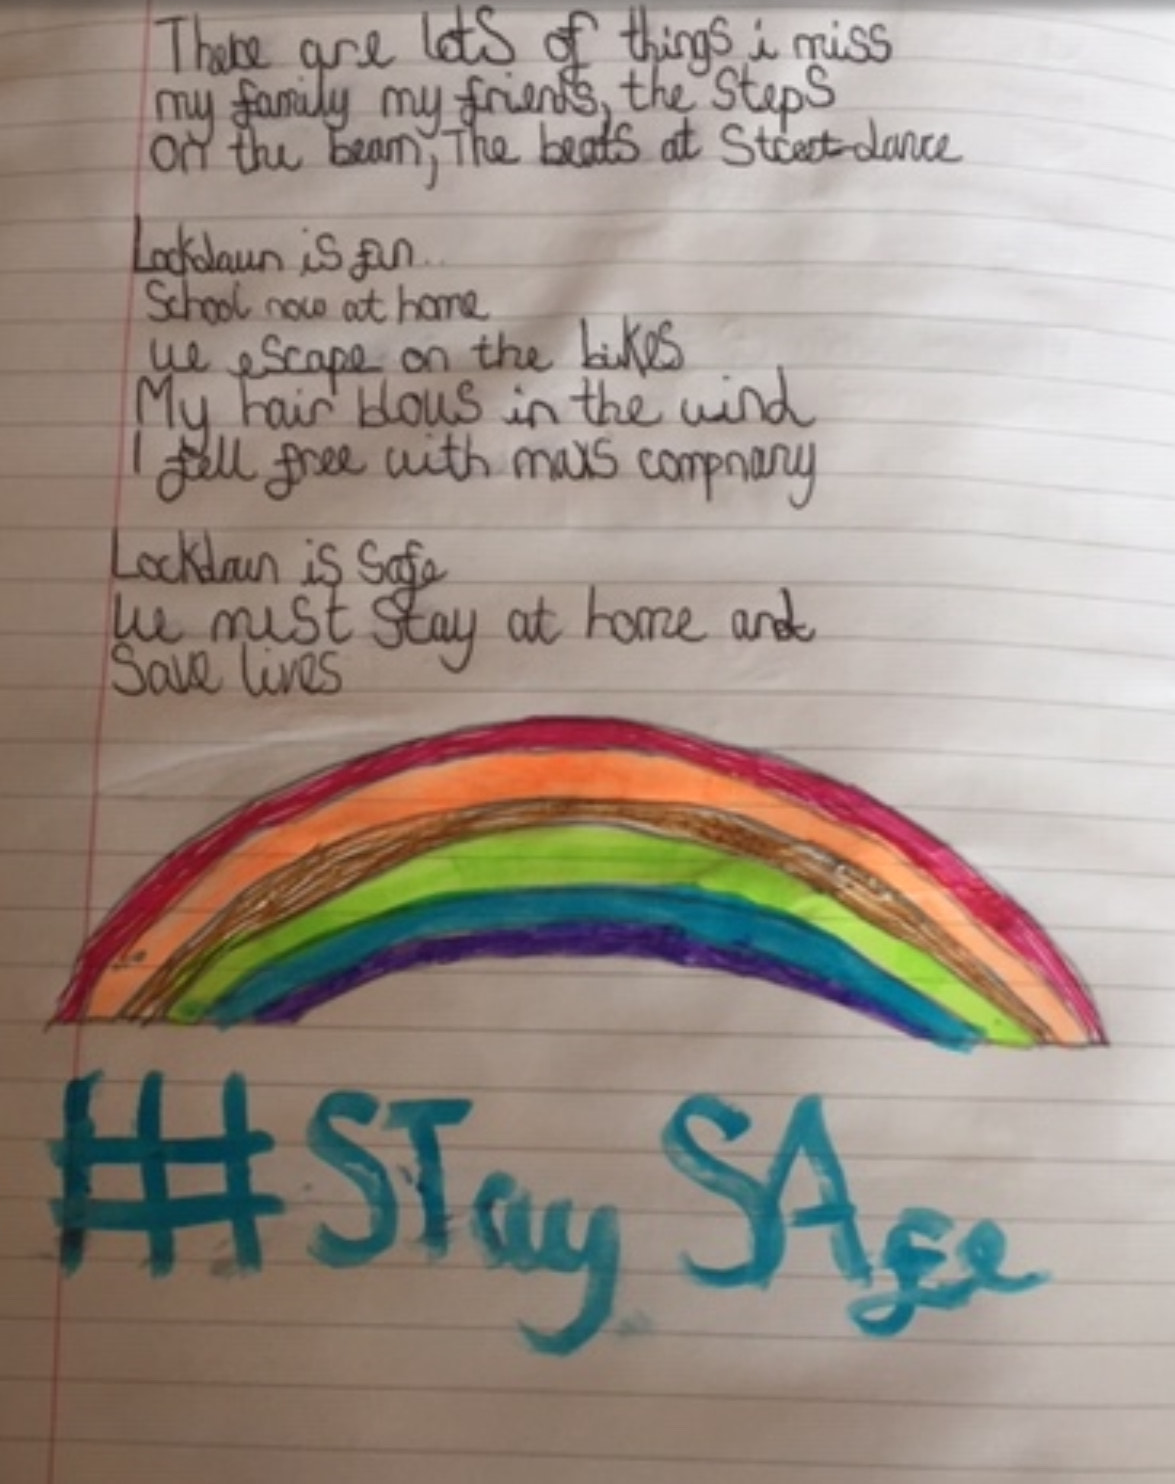 There are lots of things i miss
my family my friends, the Steps
on the beam, The beats at Street dance
Lockdawn is fun..
School now at home
we escape on the bikes
My hair blows in the wind
I fell free with maxs compnany
Lockdawn is Safe
We must Stay at home and
Save lives
#STay SAfe